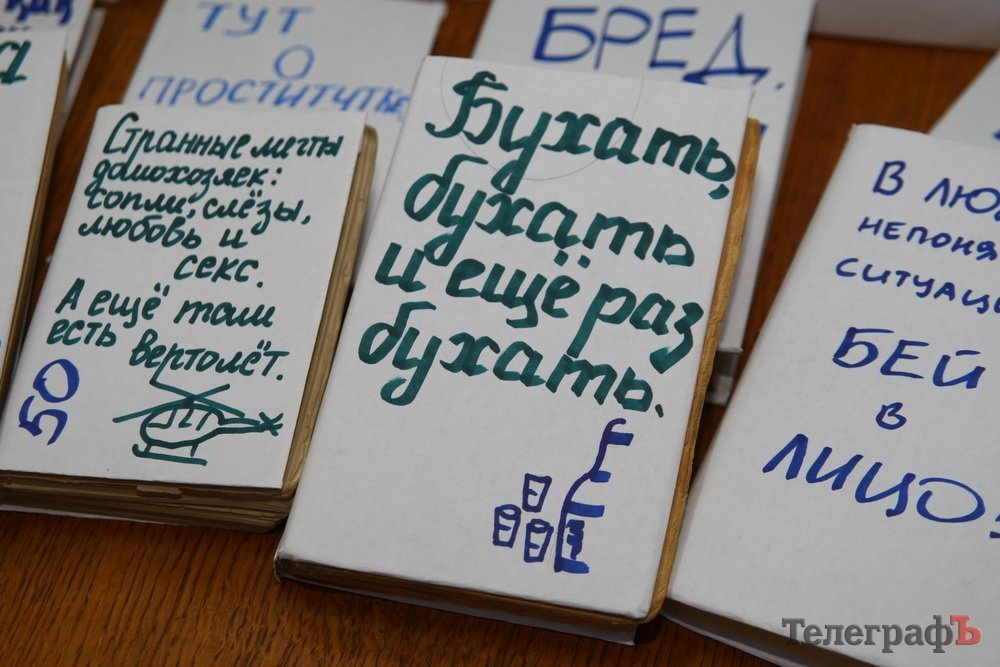 ТУТ
О
ПРОСТИТУТКЕ
БРЕД.
Странные мечты
домохозяек:
сопли, слёзы,
любовь и
секс.
А ещё там
есть вертолёт.
50
Бухать,
бухать
и ещё раз
бухать.
В ЛЮ
НЕПОНЯ
СИТУАЦИ
БЕЙ
В
ЛИЦО
ТелеграфЪ